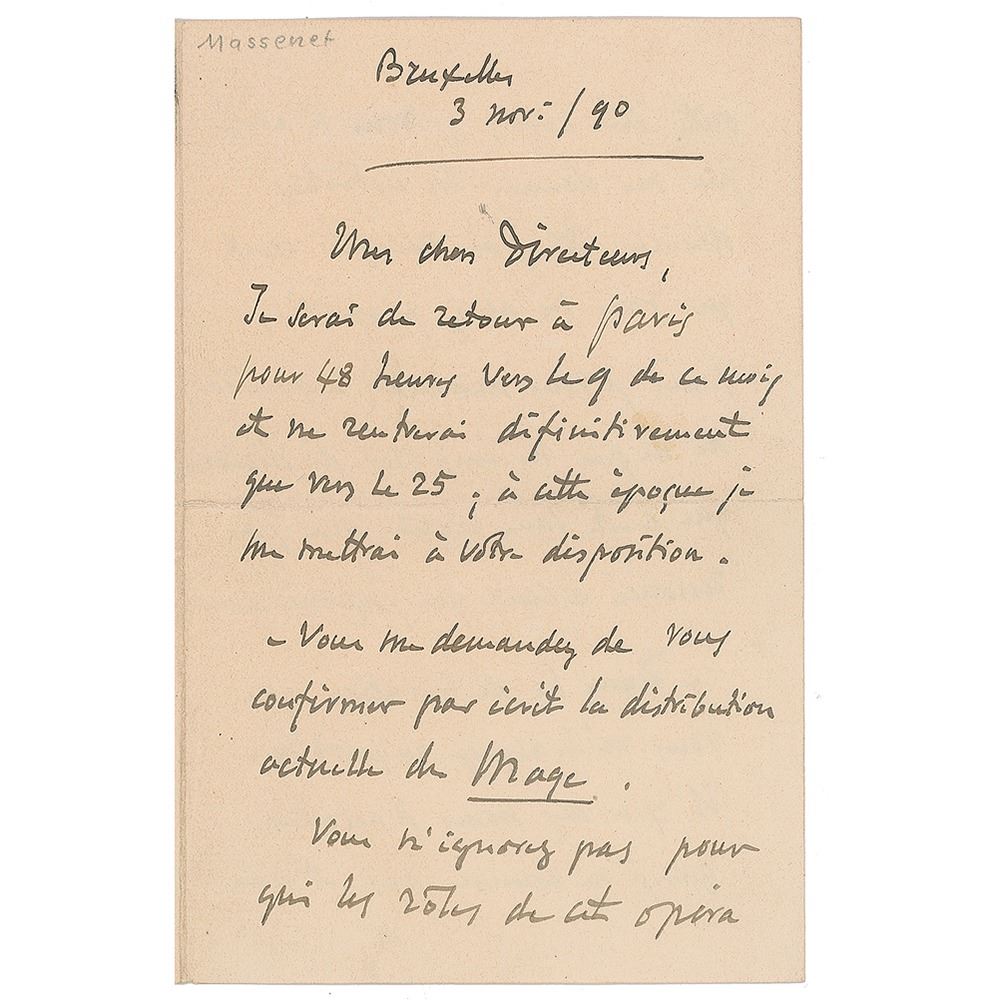 Massenet
Bruxelles
3 nov: / 90
Mes chers Directeurs,
Je serai de retour à Paris
pour 48 heures vers le 9 de ce mois
et ne rentrerai définitivement
que vers le 25 ; à cette époque je
me mettrai à votre disposition.
- Vous me demandez de vous
confirmer par écrit la distribution
actuelle du Mage.
Vous n'ignorez pas pour
qui les rôles de cet opéra